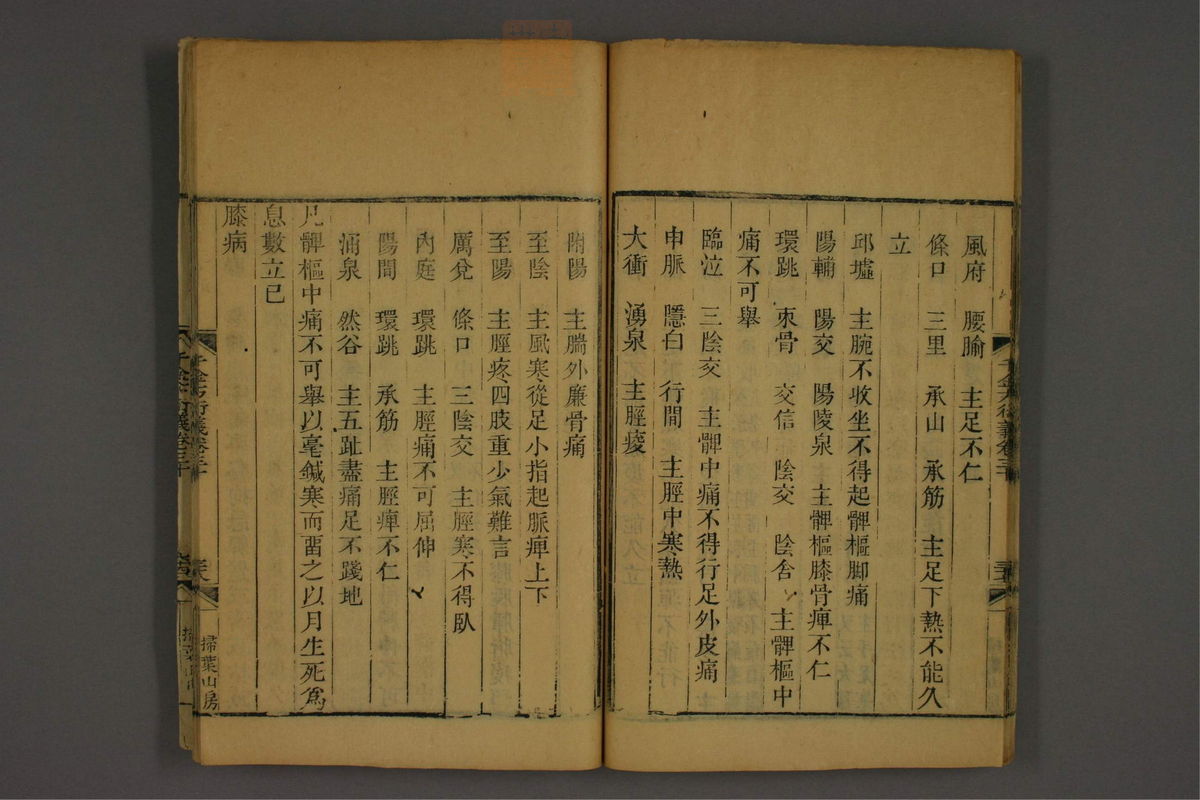 風府 腰腧 主足不仁
條口 三里 承山 承筋 主足下熱不能久
立
邱墟 主腕不收坐不得起髀樞脚痛
陽輔 陽交 陽陵泉 主髀樞膝骨痺不仁
環跳 束骨 交信 陰交 陰舍 主髀樞中
痛不可舉
臨泣 三陰交 主髀中痛不得行足外皮痛
申脈 隱白 行間 主脛中寒熱
大衝 湧泉 主脛痠
附陽 主腨外廉骨痛
至陰 主風寒從足小指起脈痺上下
至陽 主脛疼四肢重少氣難言
厲兌 條口 三陰交 主脛寒不得臥
內庭 環跳 主脛痛不可屈伸
陽間 環跳 承筋 主脛痺不仁
涌泉 然谷 主五趾盡痛足不踐地
凡髀樞中痛不可舉以毫鍼寒而畱之以月生死爲
息數立已
膝病
千金方衍義卷三十
掃葉山房